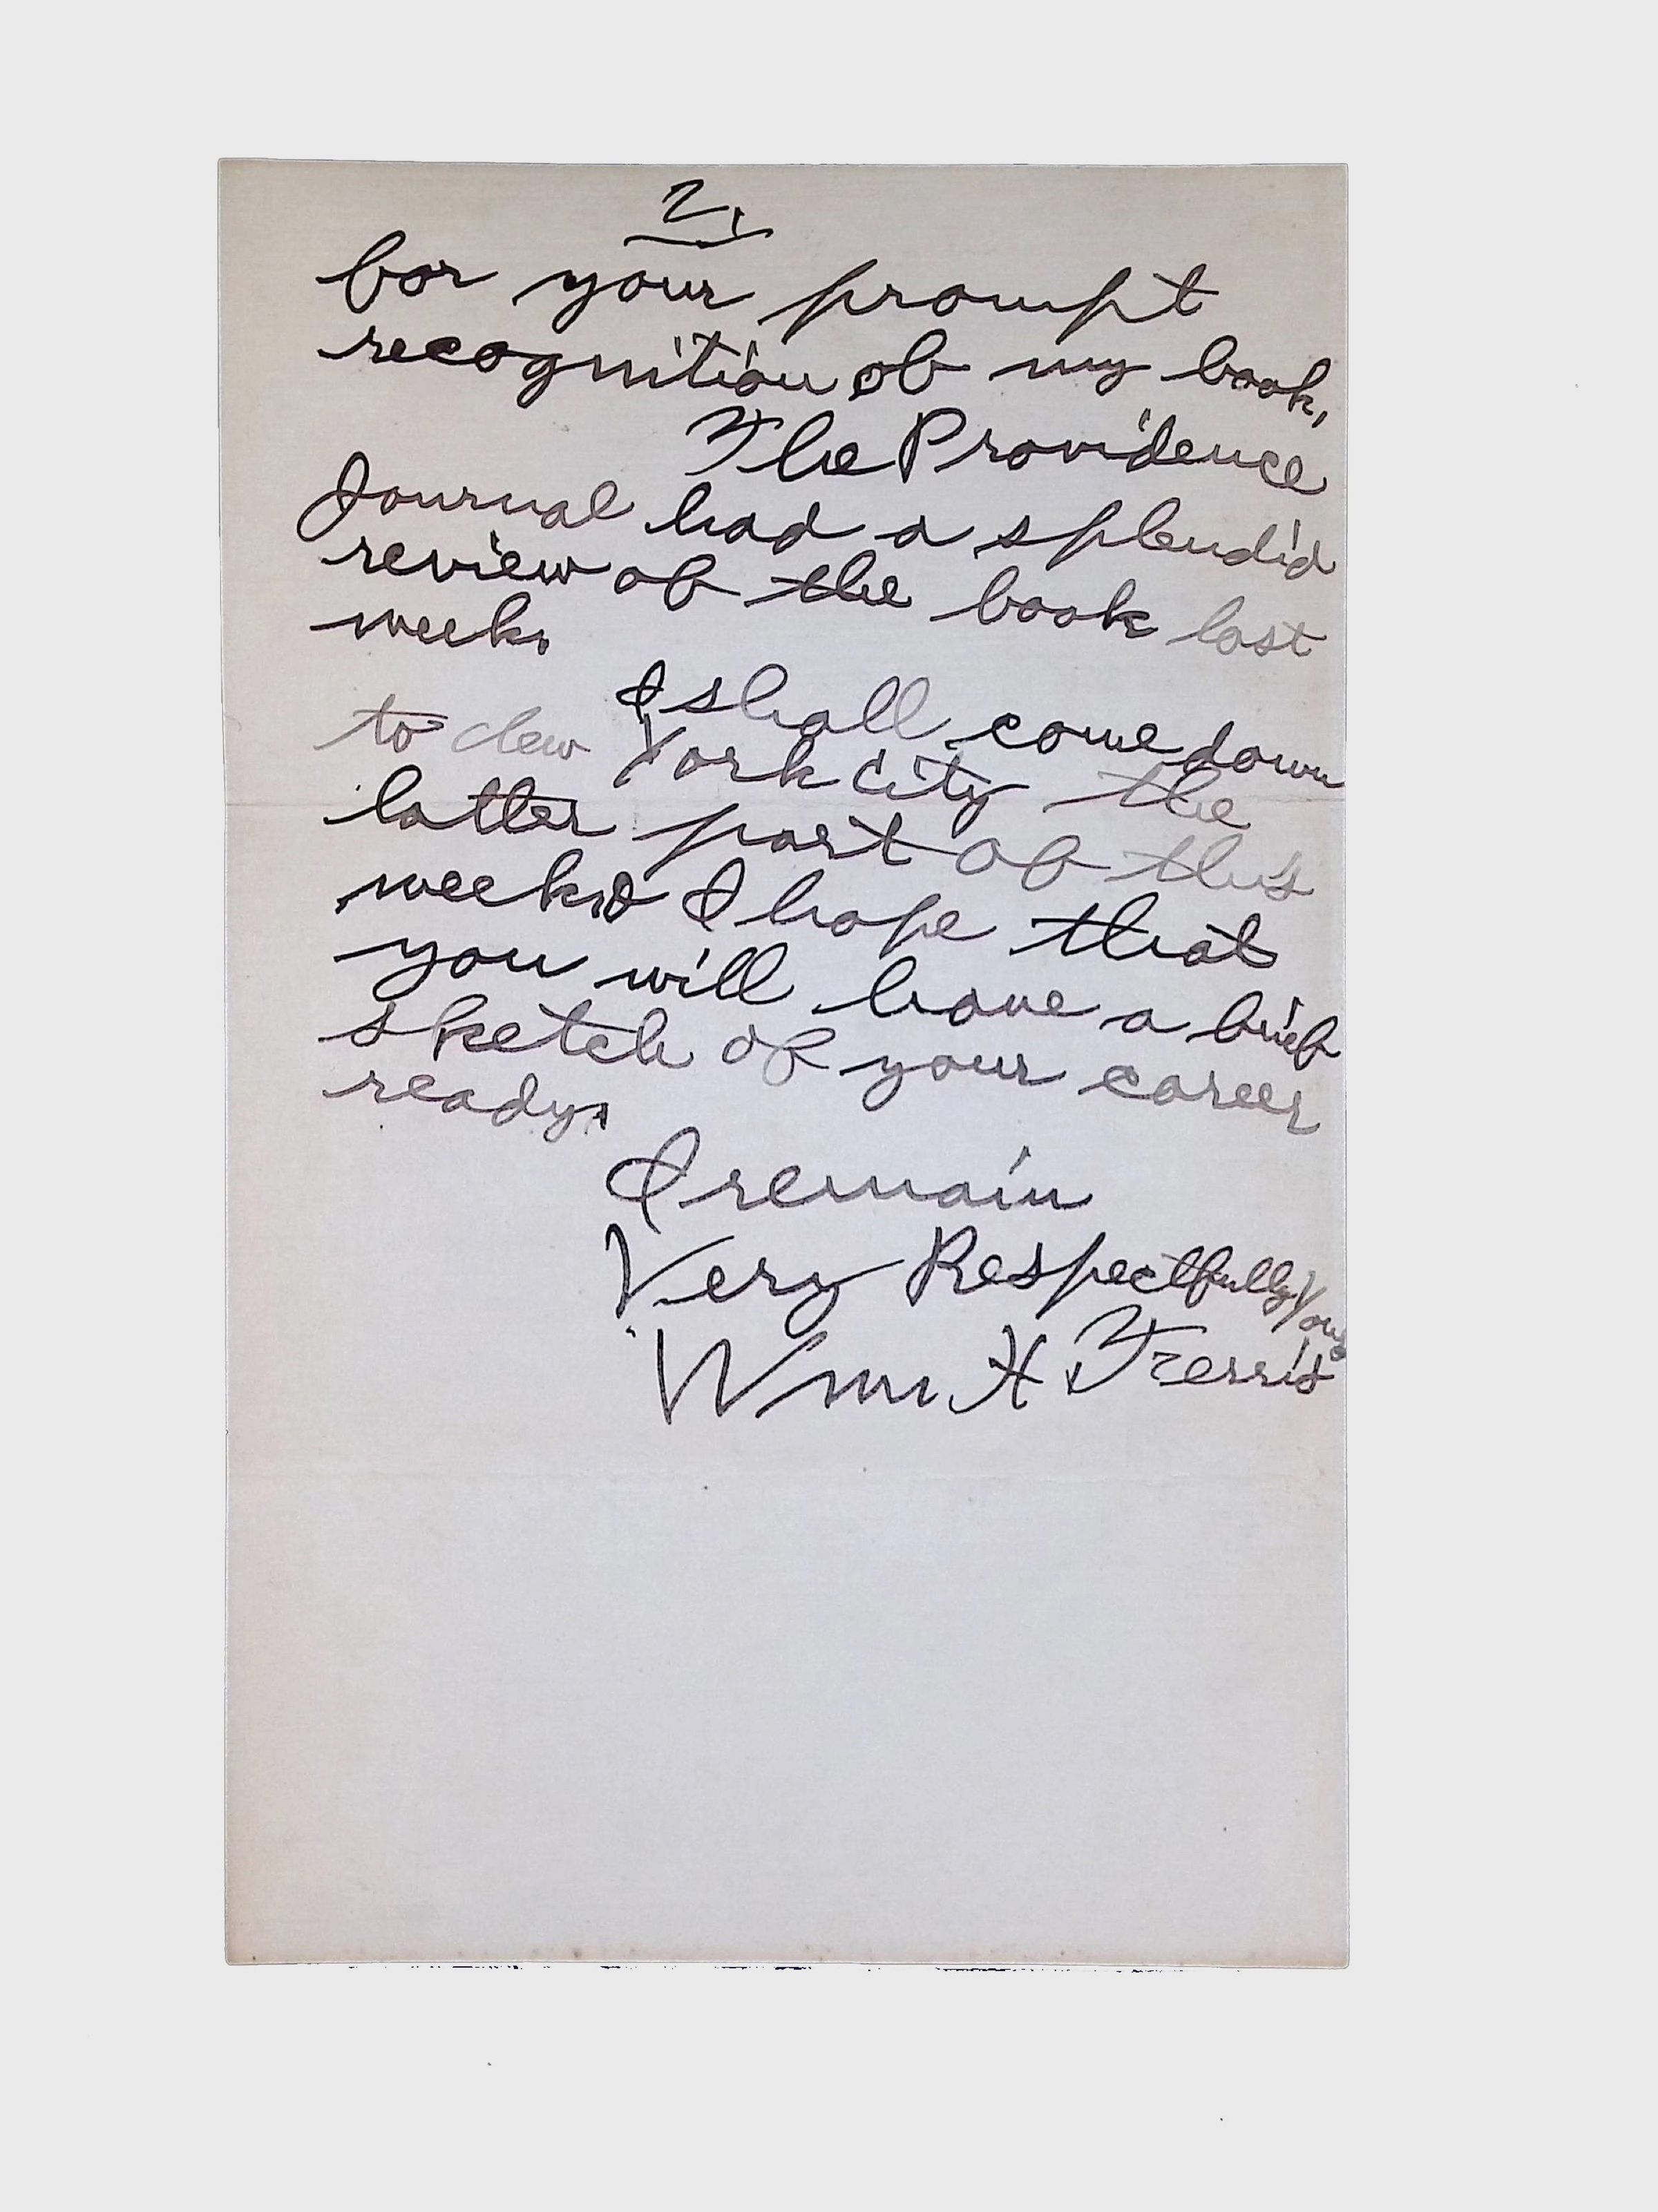 2.
for your prompt
recognition of my book,
The Providence
Journal had a splendid
review of the book last
week.
I shall come down
to New York City the
latter part of this
week & I hope that
you will have a brief
sketch of your career
ready.
I remain
Very Respectfully Yours
Wm H. Ferris